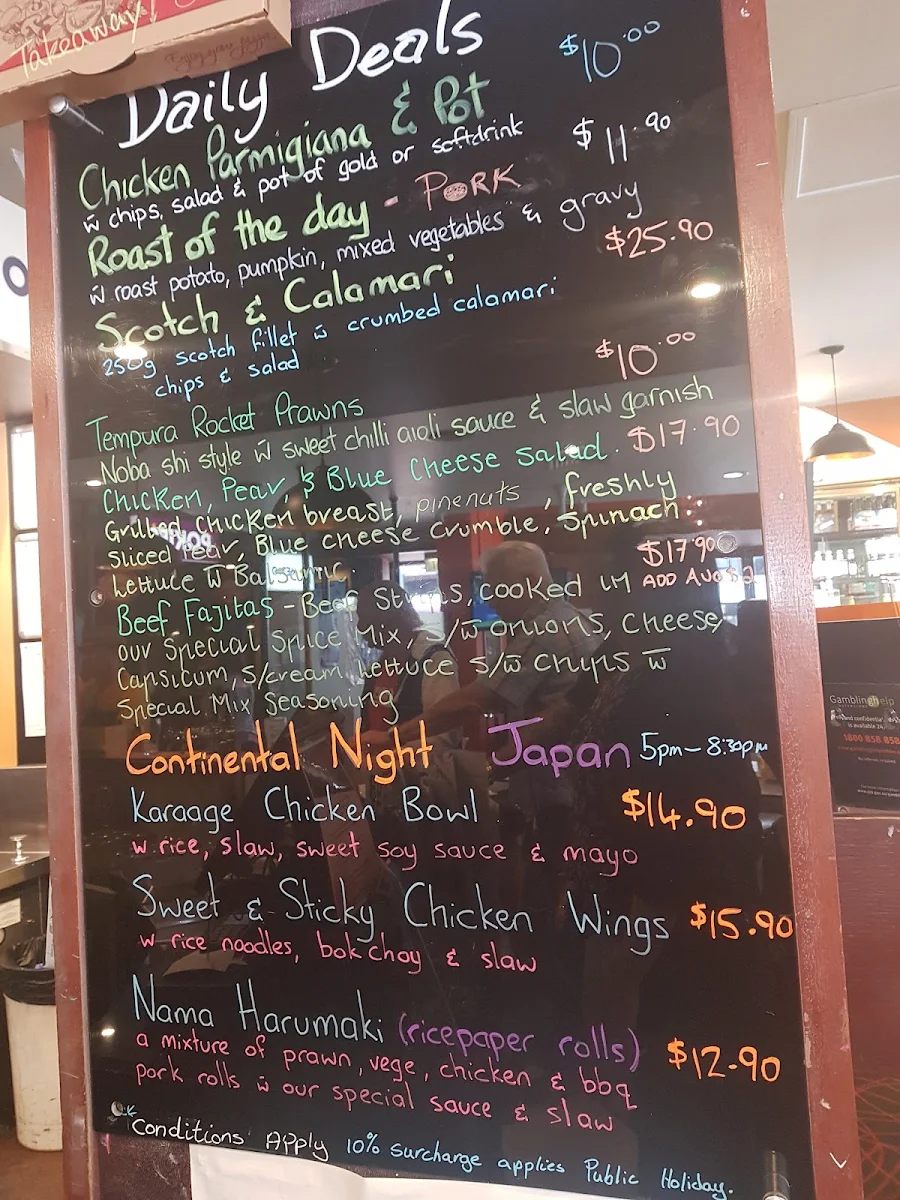 Takeaway!
Enjoy your Pizza
Daily Deals
$10.00
Chicken Parmigiana & Pot
w chips, salad & pot of gold or softdrink
$11.90
Roast of the day - PORK
w roast potato, pumpkin, mixed vegetables & gravy
$25.90
Scotch & Calamari
250g scotch fillet w crumbed calamari
chips & salad
$10.00
Tempura Rocket Prawns
Noba shi style w sweet chilli aioli sauce & slaw garnish
Chicken, Pear, & Blue Cheese Salad. $17.90
Grilled chicken breast, pinenuts, freshly
sliced Pear, Blue cheese crumble, Spinach
Lettuce w Balsamic.
$17.90
ADD AVO $2
Beef Fajitas - Beef Strips, cooked in
our Special Spice Mix, s/w onions, cheese,
Capsicum, s/cream, Lettuce s/w chips w
Special Mix Seasoning
Continental Night Japan 5pm - 8:30pm
Karaage Chicken Bowl $14.90
w. rice, slaw, sweet soy sauce & mayo
Sweet & Sticky Chicken Wings $15.90
w rice noodles, bok choy & slaw
Nama Harumaki (ricepaper rolls) $12.90
a mixture of prawn, vege, chicken & bbq
pork rolls w our special sauce & slaw
*Conditions Apply 10% surcharge applies Public Holiday.
Gamblinghelp
1800 858 858